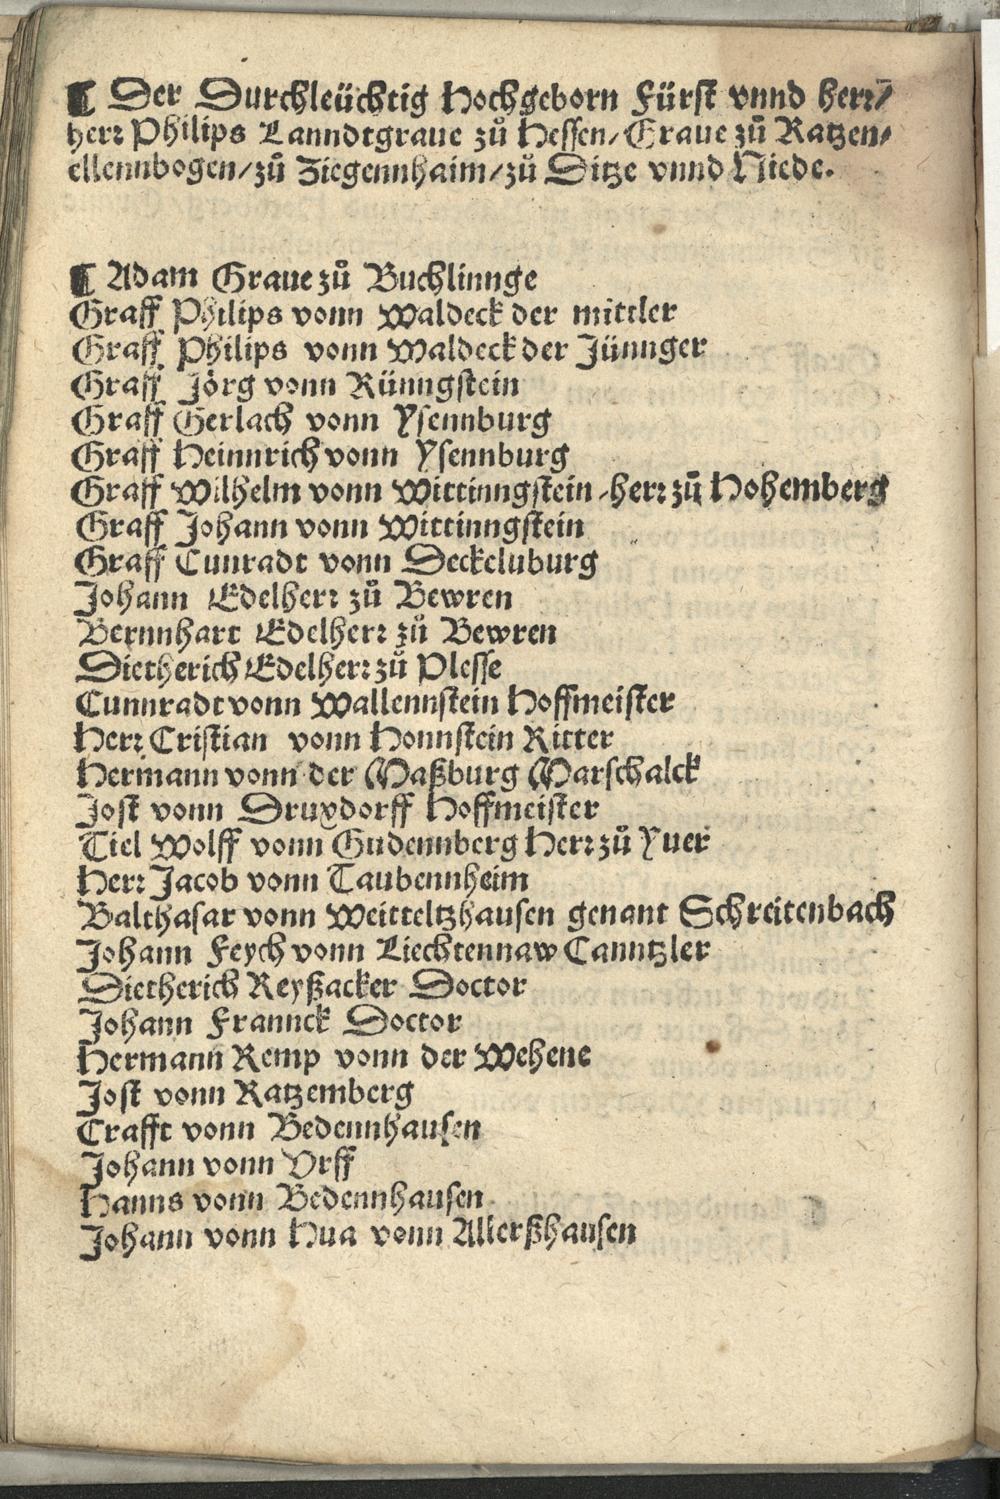 ¶ Der Durchleüchtig Hochgeborn Fürst vnnd herr/
herr Philips Lanndtgraue zů Hessen/ Graue zů Katzen/
ellennbogen/ zů Ziegennhaim/ zů Ditze vnnd Niede.
¶ Adam Graue zů Buchlinnge
Graff Philips vonn Waldeck der mittler
Graff Philips vonn Waldeck der Jünnger
Graff Jörg vonn Künngstein
Graff Gerlach vonn Ysennburg
Graff Heinnrich vonn Ysennburg
Graff Wilhelm vonn Wittinngstein/ herr zů Hohemberg
Graff Johann vonn Wittinngstein
Graff Cunradt vonn Deckeluburg
Johann Edelherr zů Bewren
Bernnhart Edelherr zů Bewren
Dietherich Edelherr zů Plesse
Cunnradt vonn Wallennstein Hoffmeister
Herr Cristian vonn Honnstein Ritter
Hermann vonn der Maßburg Marschalck
Jost vonn Druxdorff Hoffmeister
Tiel Wolff vonn Gudennberg Herr zů Yuer
Herr Jacob vonn Taubennheim
Balthasar vonn Weitteltzhausen genant Schreitenbach
Johann Feych vonn Liechtennaw Canntzler
Dietherich Reyßacker Doctor
Johann Frannck Doctor
Hermann Remp vonn der Wehene
Jost vonn Ratzemberg
Crafft vonn Bedennhausen
Johann vonn Vrff
Hanns vonn Bedennhausen
Johann vonn Hua vonn Allerßhausen